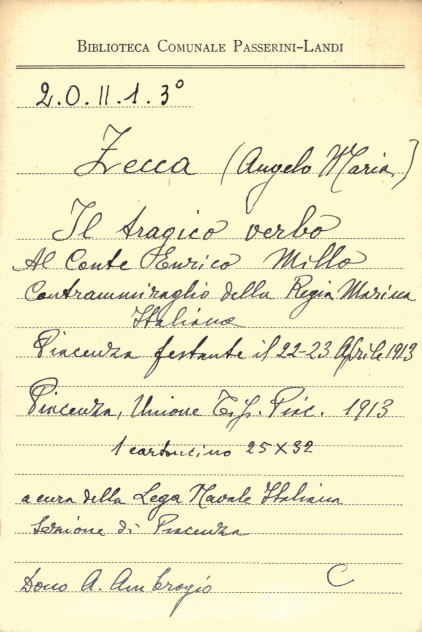 BIBLIOTECA COMUNALE PASSERINI-LANDI
2.O.II.1.3°
Zecca (Angelo Maria)
Il tragico verbo
Al Conte Enrico Millo
Contrammiraglio della Regia Marina
Italiana
Piacenza festante il 22-23 Aprile 1913
Piacenza, Unione Tip. Piac. 1913
1 cartoncino 25×32
a cura della Lega Navale Italiana
Sezione di Piacenza
Dono A. Ambrogio C